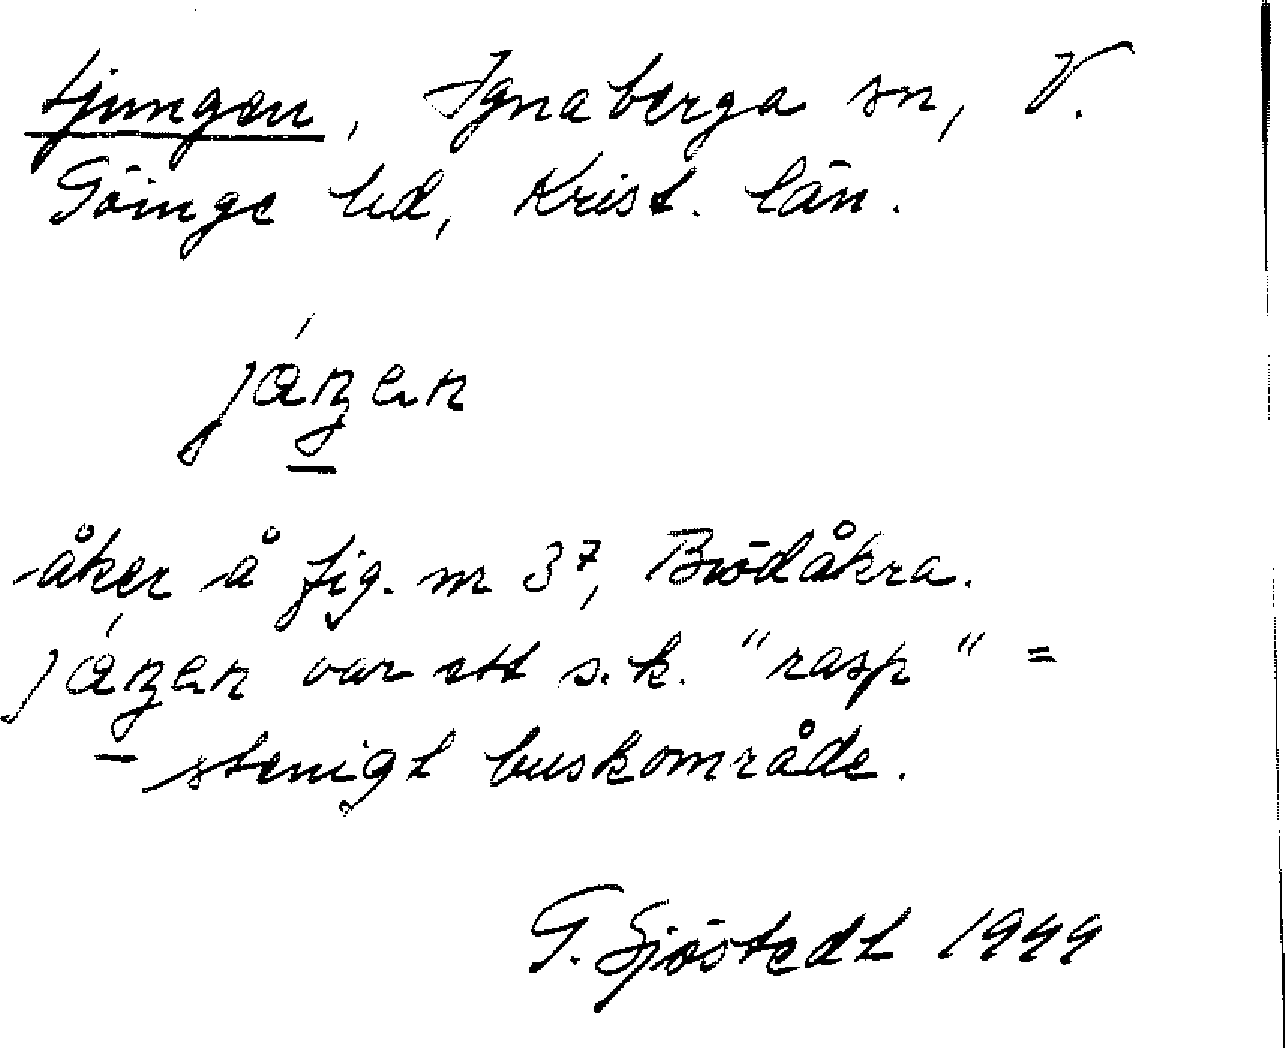 Ljungen, Ignaberga sn, V.
Göinge hd, Krist. län.
jáŋen
åker å fig. nr 37, Brödåkra.
jáŋen var ett s.k. "rasp" =
stenigt buskområde.
G. Sjöstedt 1944